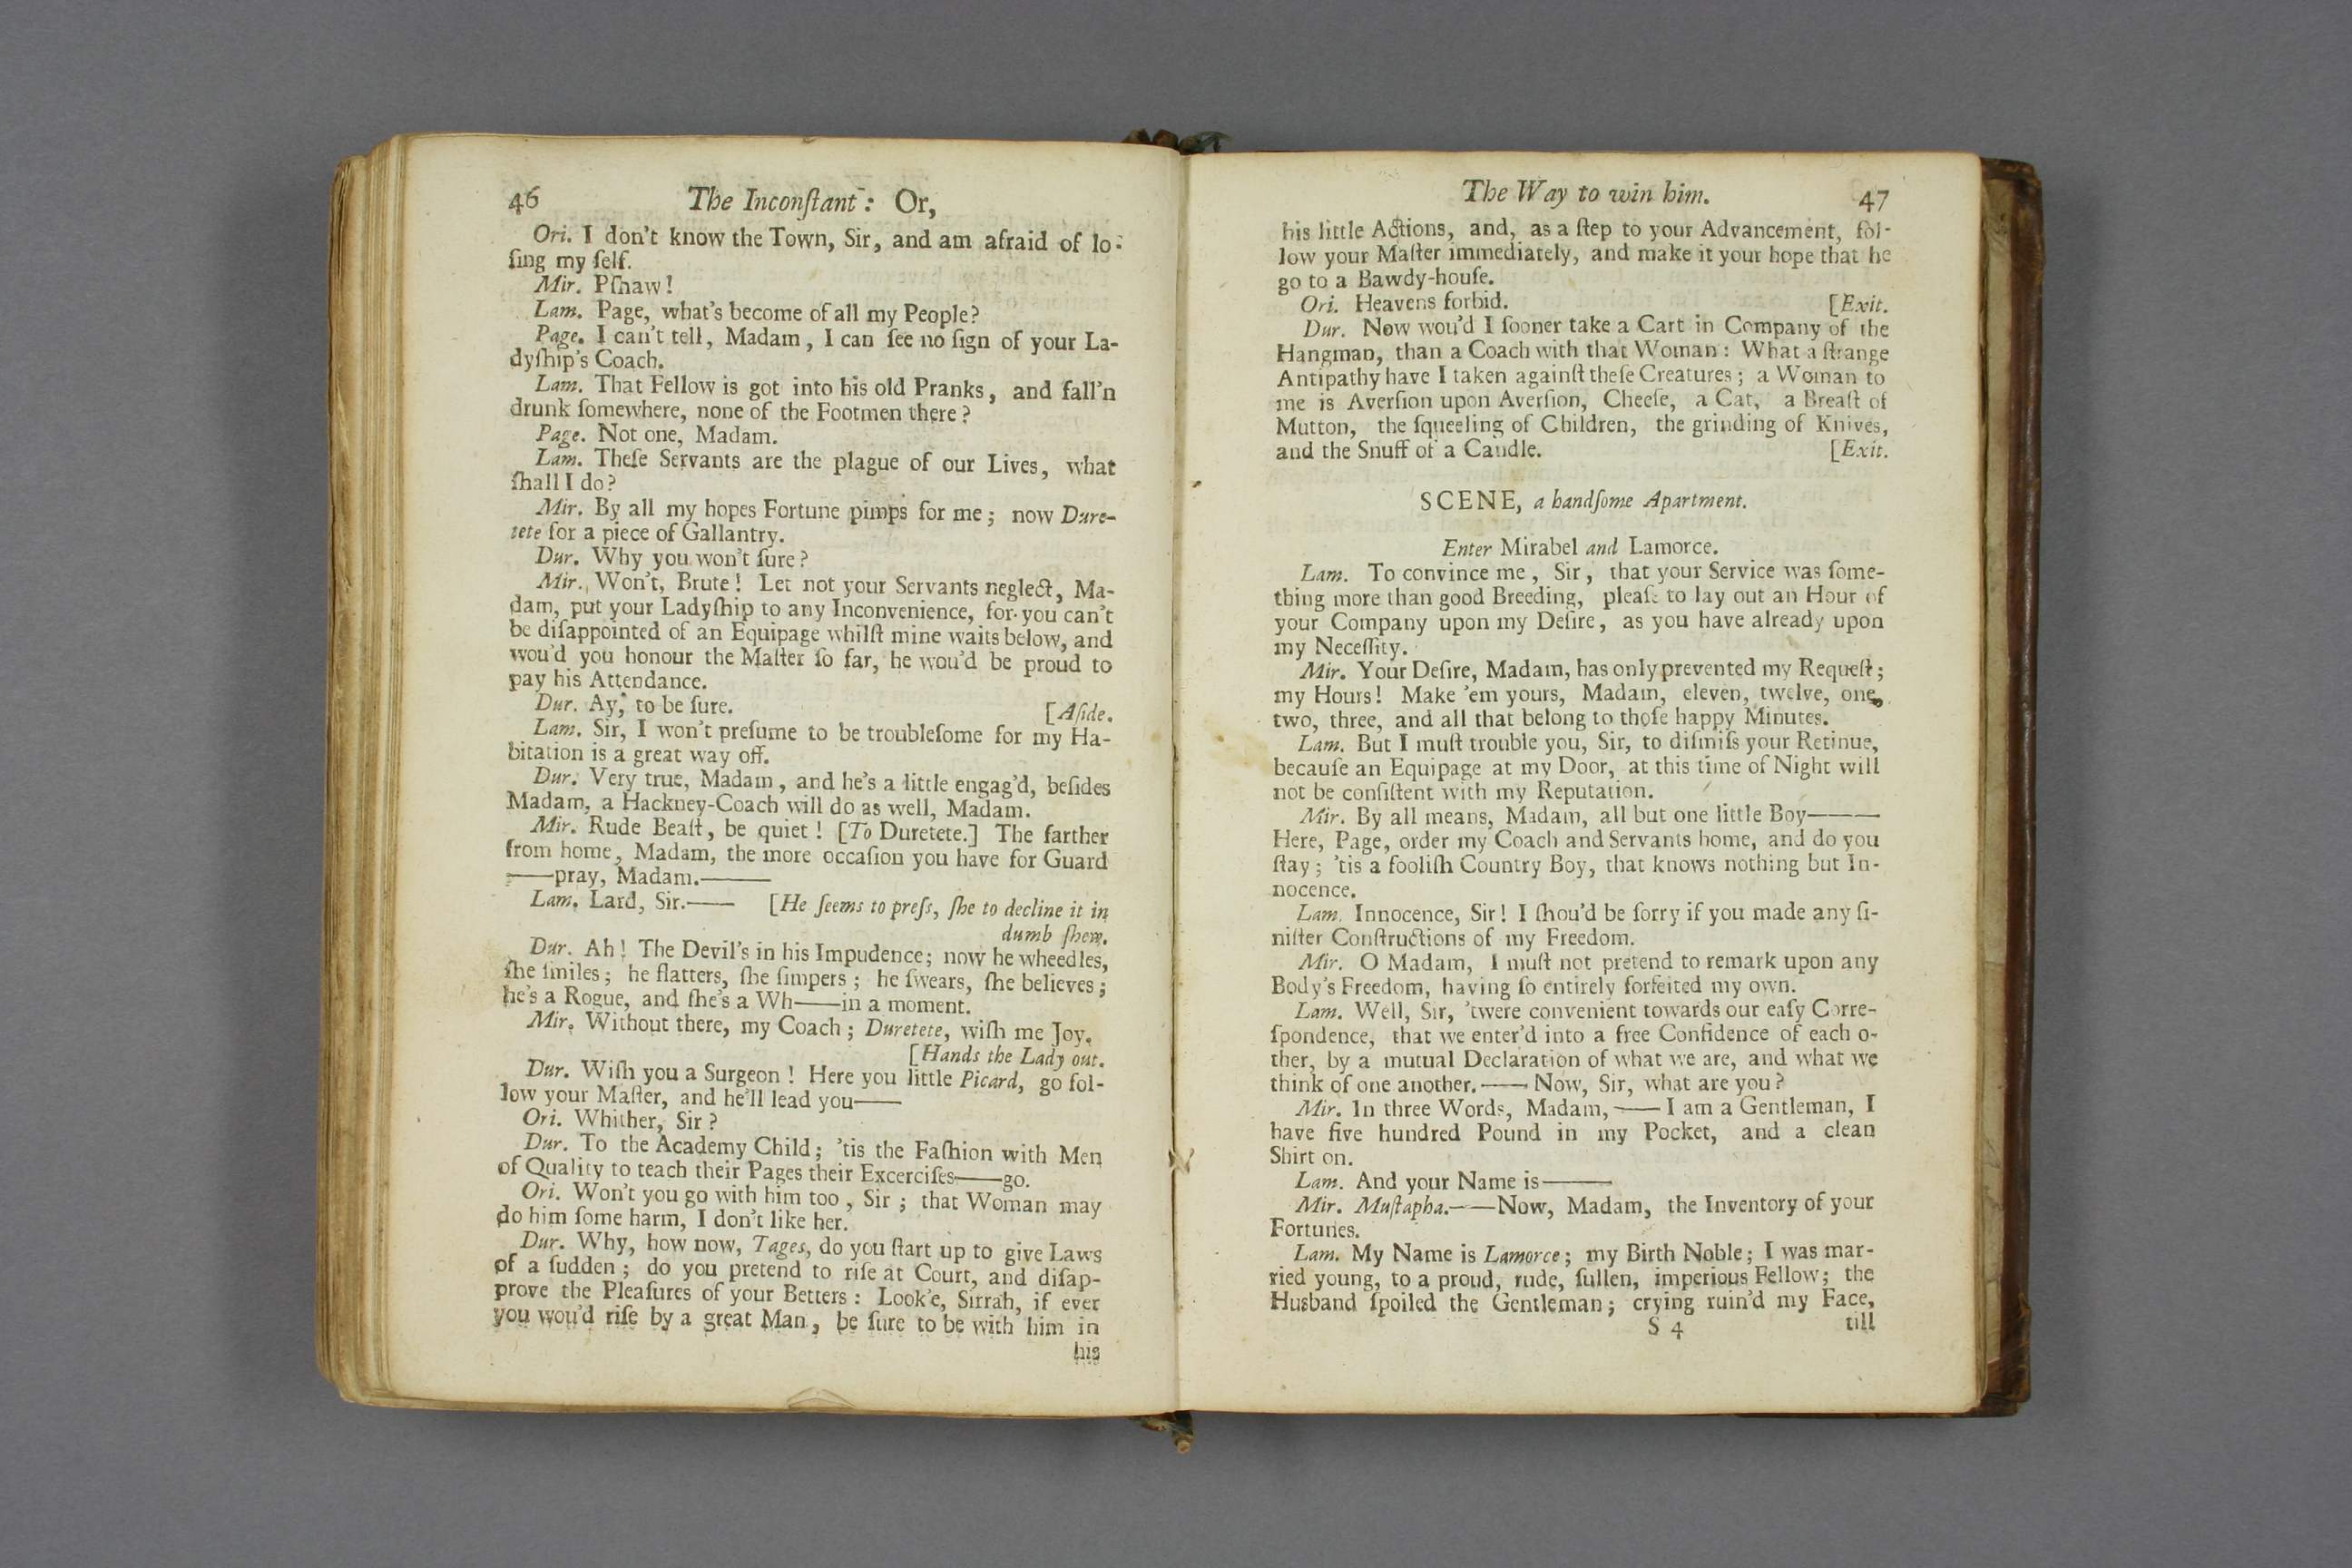 46 The Inconſtant: Or,
Ori. I don't know the Town, Sir, and am afraid of lo-
ſing my ſelf.
Mir. Pſhaw!
Lam. Page, what's become of all my People?
Page. I can't tell, Madam, I can ſee no ſign of your La-
dyſhip's Coach.
Lam. That Fellow is got into his old Pranks, and fall'n
drunk ſomewhere, none of the Footmen there?
Page. Not one, Madam.
Lam. Theſe Servants are the plague of our Lives, what
ſhall I do?
Mir. By all my hopes Fortune pimps for me; now Dure-
tete for a piece of Gallantry.
Dur. Why you won't ſure?
Mir. Won't, Brute! Let not your Servants neglect, Ma-
dam, put your Ladyſhip to any Inconvenience, for you can't
be diſappointed of an Equipage whilſt mine waits below, and
wou'd you honour the Maſter ſo far, he wou'd be proud to
pay his Attendance.
Dur. Ay, to be ſure. [Aſide.
Lam. Sir, I won't preſume to be troubleſome for my Ha-
bitation is a great way off.
Dur. Very true, Madam, and he's a little engag'd, beſides
Madam, a Hackney-Coach will do as well, Madam.
Mir. Rude Beaſt, be quiet! [To Duretete.] The farther
from home, Madam, the more occaſion you have for Guard
——pray, Madam.———
Lam. Lard, Sir.—— [He ſeems to preſs, ſhe to decline it in
dumb ſhew.
Dur. Ah! The Devil's in his Impudence; now he wheedles,
ſhe ſmiles; he flatters, ſhe ſimpers; he ſwears, ſhe believes;
he's a Rogue, and ſhe's a Wh——in a moment.
Mir. Without there, my Coach; Duretete, wiſh me Joy.
[Hands the Lady out.
Dur. Wiſh you a Surgeon! Here you little Picard, go fol-
low your Maſter, and he'll lead you——
Ori. Whither, Sir?
Dur. To the Academy Child; 'tis the Faſhion with Men
of Quality to teach their Pages their Excerciſes——go.
Ori. Won't you go with him too, Sir; that Woman may
do him ſome harm, I don't like her.
Dur. Why, how now, Tages, do you ſtart up to give Laws
of a ſudden; do you pretend to riſe at Court, and diſap-
prove the Pleaſures of your Betters: Look'e, Sirrah, if ever
you wou'd riſe by a great Man, be ſure to be with him in
his
The Way to win him. 47
his little Actions, and, as a ſtep to your Advancement, fol-
low your Maſter immediately, and make it your hope that he
go to a Bawdy-houſe.
Ori. Heavens forbid. [Exit.
Dur. Now wou'd I ſooner take a Cart in Company of the
Hangman, than a Coach with that Woman: What a ſtrange
Antipathy have I taken againſt theſe Creatures; a Woman to
me is Averſion upon Averſion, Cheeſe, a Cat, a Breaſt of
Mutton, the ſqueeling of Children, the grinding of Knives,
and the Snuff of a Candle. [Exit.
SCENE, a handſome Apartment.
Enter Mirabel and Lamorce.
Lam. To convince me, Sir, that your Service was ſome-
thing more than good Breeding, pleaſe to lay out an Hour of
your Company upon my Deſire, as you have already upon
my Neceſſity.
Mir. Your Deſire, Madam, has only prevented my Requeſt;
my Hours! Make 'em yours, Madam, eleven, twelve, one,
two, three, and all that belong to thoſe happy Minutes.
Lam. But I muſt trouble you, Sir, to diſmiſs your Retinue,
becauſe an Equipage at my Door, at this time of Night will
not be conſiſtent with my Reputation.
Mir. By all means, Madam, all but one little Boy———
Here, Page, order my Coach and Servants home, and do you
ſtay; 'tis a fooliſh Country Boy, that knows nothing but In-
nocence.
Lam. Innocence, Sir! I ſhou'd be ſorry if you made any ſi-
niſter Conſtructions of my Freedom.
Mir. O Madam, I muſt not pretend to remark upon any
Body's Freedom, having ſo entirely forfeited my own.
Lam. Well, Sir, 'twere convenient towards our eaſy Corre-
ſpondence, that we enter'd into a free Confidence of each o-
ther, by a mutual Declaration of what we are, and what we
think of one another.——Now, Sir, what are you?
Mir. In three Words, Madam,——I am a Gentleman, I
have five hundred Pound in my Pocket, and a clean
Shirt on.
Lam. And your Name is———
Mir. Muſtapha.——Now, Madam, the Inventory of your
Fortunes.
Lam. My Name is Lamorce; my Birth Noble; I was mar-
ried young, to a proud, rude, ſullen, imperious Fellow; the
Husband ſpoiled the Gentleman; crying ruin'd my Face,
S 4 till